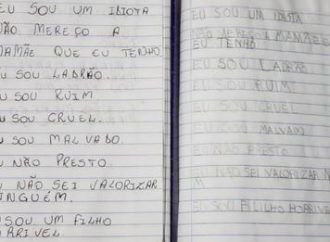 EU SOU UM IDIOTA
NÃO MEREÇO A
MAMÃE QUE EU TENHO
EU SOU LADRÃO.
EU SOU RUIM.
EU SOU CRUEL.
EU SOU MALVADO.
EU NÃO PRESTO.
EU NÃO SEI VALORIZAR
NINGUÉM.
EU SOU UM FILHO
HORRIVEL
EU SOU UM IDIOTA
NÃO MEREÇO A MAMÃE
EU TENHO
EU SOU LADRÃO
EU SOU RUIM
EU SOU CRUEL
EU NÃO PRESTO
EU NÃO SEI VALORIZAR